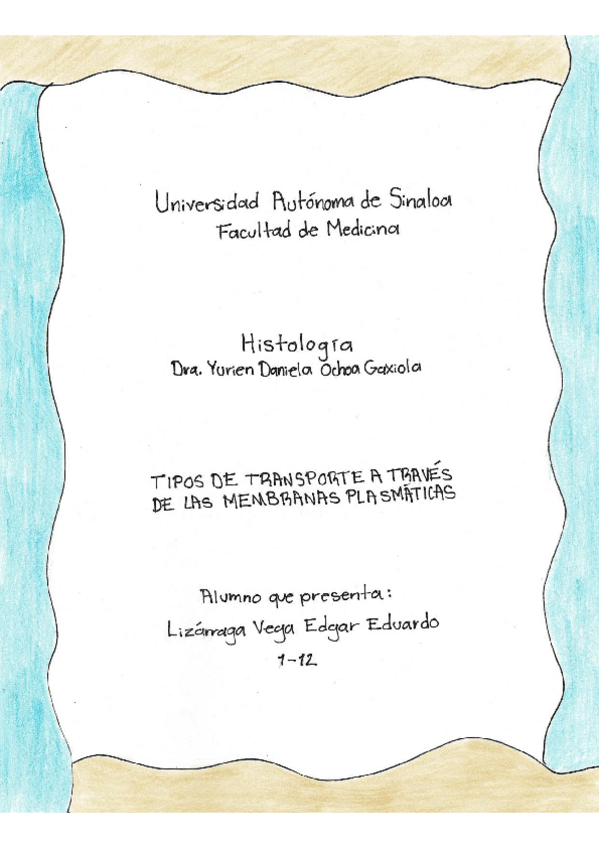 Universidad Autónoma de Sinaloa
Facultad de Medicina
Histología
Dra. Yurien Daniela Ochoa Gaxiola
TIPOS DE TRANSPORTE A TRAVÉS
DE LAS MEMBRANAS PLASMÁTICAS
Alumno que presenta:
Lizárraga Vega Edgar Eduardo
1-12